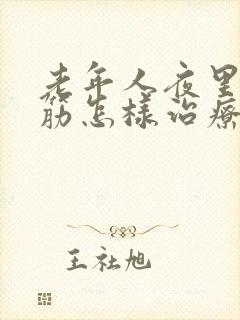 老年人夜里
筋怎样治疗
王社旭